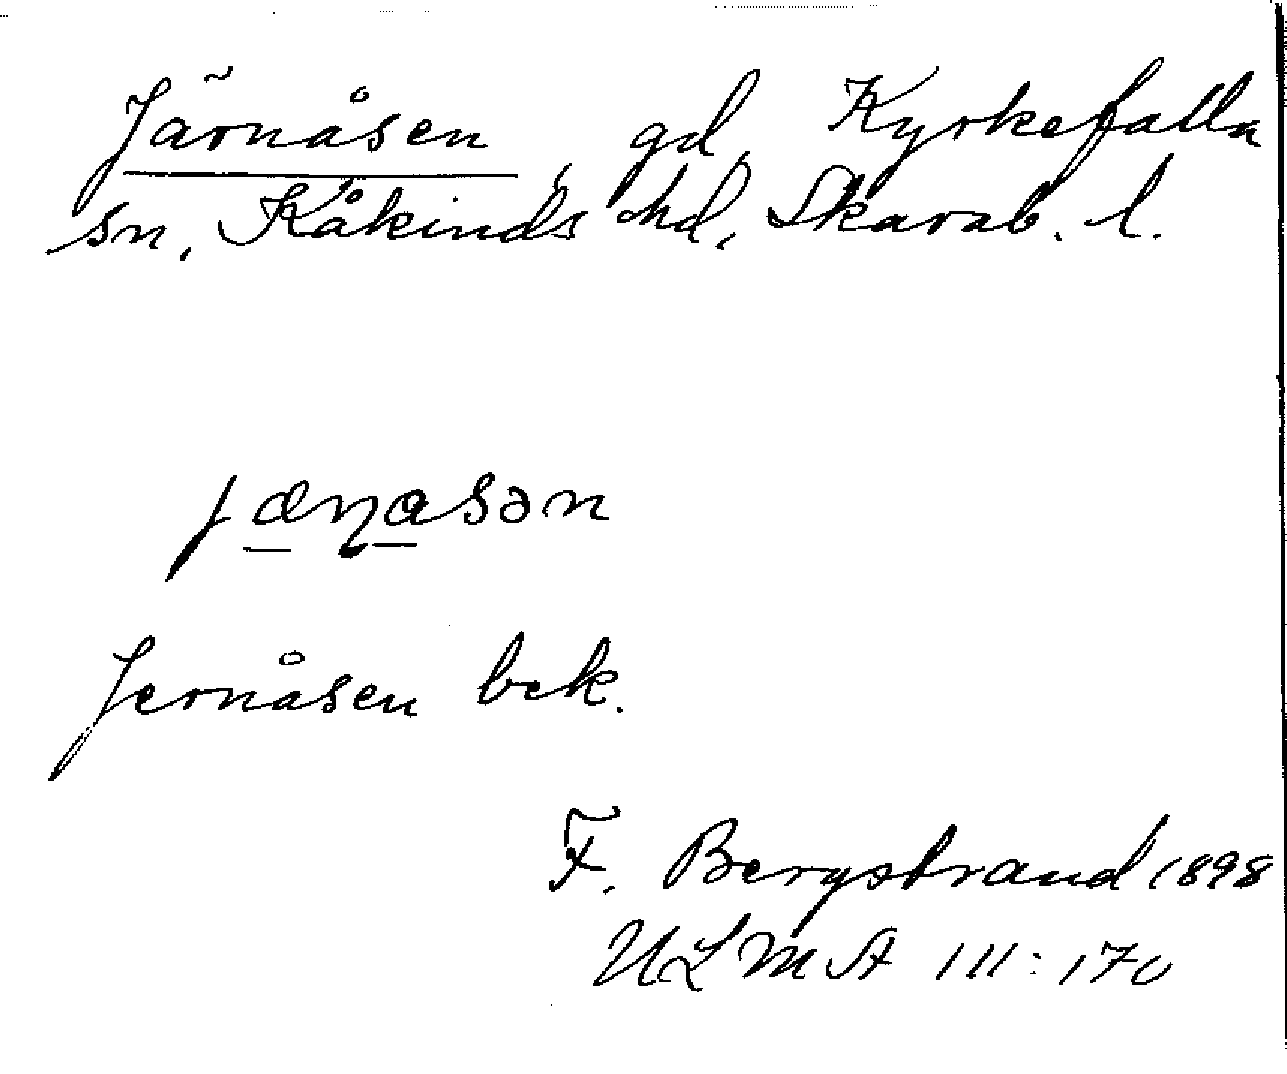 Järnåsen, gd, Kyrkefalla
sn, Kåkinds hd, Skarab. l.
jæɳasən
Jernåsen bek.
F. Bergstrand 1898
ULMA 111:170